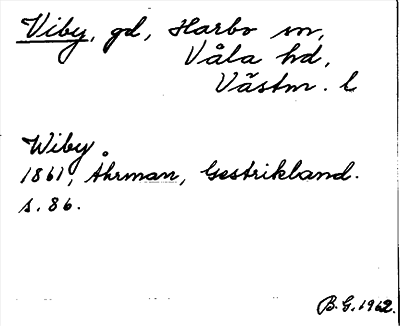 Viby, gd, Harbo sn,
Våla hd,
Västm. l
Wiby
1861, Åhrman, Gestrikland.
s. 86.
B.G. 1962.